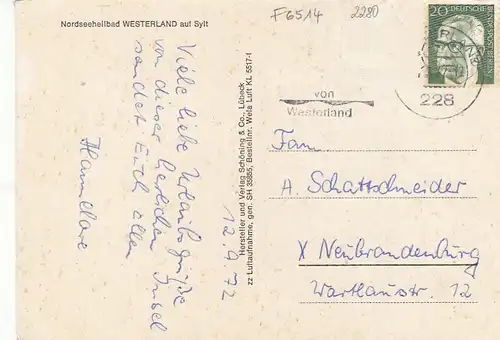 Nordseeheilbad WESTERLAND auf Sylt
F6514
2280
20
DEUTSCHE
228
von
Westerland
Viele liebe Urlaubsgrüße
von dieser herrlichen Insel
sendet Euch allen
Hannelore
12.9.72
Hersteller und Verlag Schöning & Co., Lübeck
zz Luftaufnahme, gen. SH 35865, Bestellnr. Weta Luft KL 5517-1
Fam.
A. Schattschneider
X Neubrandenburg
Warthaustr. 12